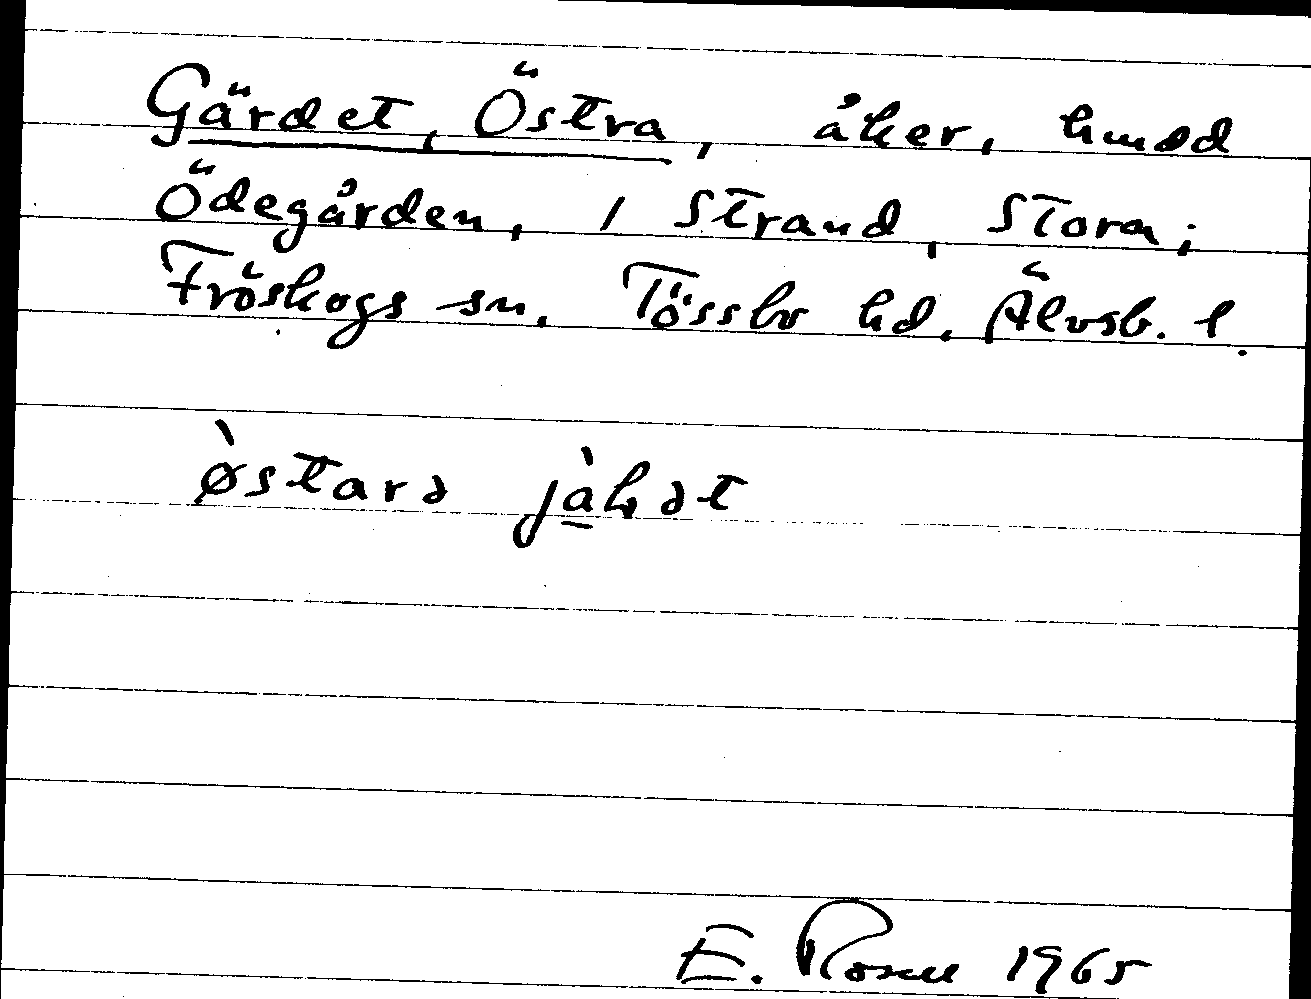 Gärdet, Östra, åker, hmsd
Ödegården, 1 Strand, Stora;
Fröskogs sn. Tössbo hd. Älvsb. l.
òstarə jàḷət
E. Rosell 1965